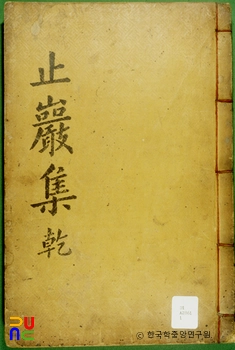 止巖集 乾
ⓒ 한국학중앙연구원